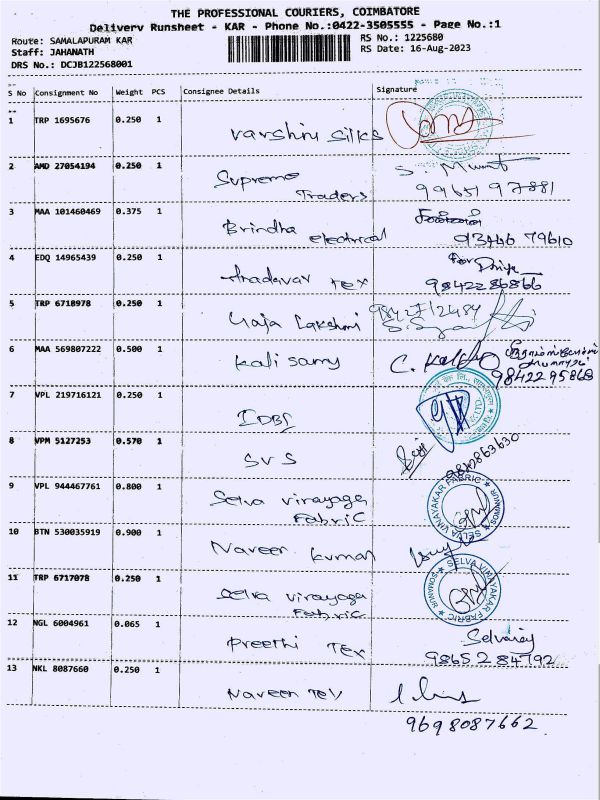 THE PROFESSIONAL COURIERS, COIMBATORE
Delivery Runsheet - KAR - Phone No.:0422-3505555 - Page No.:1
Route: SAMALAPURAM KAR
RS No.: 1225680
Staff: JAHANATH
RS Date: 16-Aug-2023
DRS No.: DCJB122568001
S No Consignment No Weight PCS Consignee Details Signature
1 TRP 1695676 0.250 1 Varshini Silks
2 AMD 27054194 0.250 1 Supreme Traders S. Murut
99651 97881
3 MAA 101460469 0.375 1 Brindha electrical
93446 79610
4 EDQ 14965439 0.250 1 Aradavar Tex for Priya
9842286866
5 TRP 6718978 0.250 1 Raja Lakshmi 9842712484
6 MAA 569807222 0.500 1 Kali samy
9842295868
7 VPL 219716121 0.250 1 IDBI
8 VPM 5127253 0.570 1 SVS 9842863630
9 VPL 944467761 0.800 1 Selva vinayaga Fabric SELVA VINAYAKAR FABRIC
10 BTN 530035919 0.900 1 Naveen kumar
11 TRP 6717078 0.250 1 Selva vinayaga Fabric SELVA VINAYAKAR FABRIC
12 NGL 6004961 0.065 1 Preethi Tex Selvaraj
98652 84792
13 NKL 8087660 0.250 1 Naveen Tex
9698087662